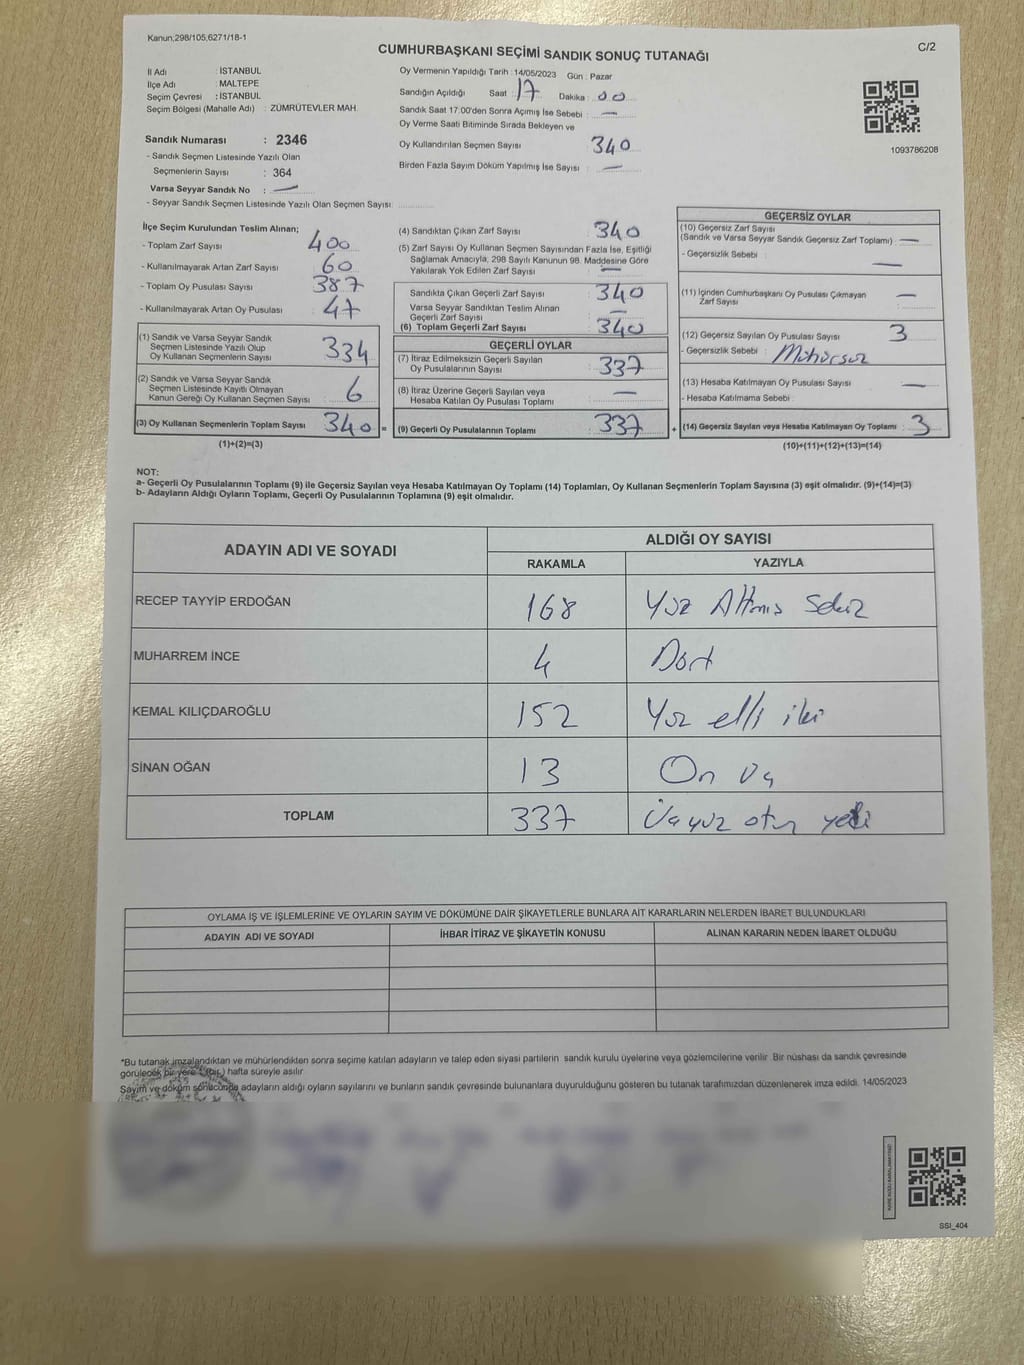 Kanun;298/105,6271/18-1
C/2
CUMHURBAŞKANI SEÇİMİ SANDIK SONUÇ TUTANAĞI
İl Adı : İSTANBUL
İlçe Adı : MALTEPE
Seçim Çevresi : İSTANBUL
Seçim Bölgesi (Mahalle Adı) : ZÜMRÜTEVLER MAH.
Sandık Numarası : 2346
- Sandık Seçmen Listesinde Yazılı Olan
Seçmenlerin Sayısı : 364
Varsa Seyyar Sandık No : —
- Seyyar Sandık Seçmen Listesinde Yazılı Olan Seçmen Sayısı:
Oy Vermenin Yapıldığı Tarih : 14/05/2023 Gün : Pazar
Sandığın Açıldığı Saat : 17 Dakika : 00
Sandık Saat 17:00'den Sonra Açımış İse Sebebi : —
Oy Verme Saati Bitiminde Sırada Bekleyen ve
Oy Kullandırılan Seçmen Sayısı : 340
Birden Fazla Sayım Döküm Yapılmış İse Sayısı : —
1093786208
İlçe Seçim Kurulundan Teslim Alınan;
- Toplam Zarf Sayısı : 400
- Kullanılmayarak Artan Zarf Sayısı : 60
- Toplam Oy Pusulası Sayısı : 387
- Kullanılmayarak Artan Oy Pusulası : 47
(1) Sandık ve Varsa Seyyar Sandık
Seçmen Listesinde Yazılı Olup
Oy Kullanan Seçmenlerin Sayısı : 334
(2) Sandık ve Varsa Seyyar Sandık
Seçmen Listesinde Kayıtlı Olmayan
Kanun Gereği Oy Kullanan Seçmen Sayısı : 6
(3) Oy Kullanan Seçmenlerin Toplam Sayısı : 340 =
(1)+(2)=(3)
(4) Sandıktan Çıkan Zarf Sayısı : 340
(5) Zarf Sayısı Oy Kullanan Seçmen Sayısından Fazla İse, Eşitliği
Sağlamak Amacıyla, 298 Sayılı Kanunun 98. Maddesine Göre
Yakılarak Yok Edilen Zarf Sayısı : —
Sandıkta Çıkan Geçerli Zarf Sayısı : 340
Varsa Seyyar Sandıktan Teslim Alınan
Geçerli Zarf Sayısı : —
(6) Toplam Geçerli Zarf Sayısı : 340
GEÇERLİ OYLAR
(7) İtiraz Edilmeksizin Geçerli Sayılan
Oy Pusulalarının Sayısı : 337
(8) İtiraz Üzerine Geçerli Sayılan veya
Hesaba Katılan Oy Pusulası Toplamı : —
(9) Geçerli Oy Pusulalarının Toplamı : 337 +
GEÇERSİZ OYLAR
(10) Geçersiz Zarf Sayısı
(Sandık ve Varsa Seyyar Sandık Geçersiz Zarf Toplamı) : —
- Geçersizlik Sebebi : —
(11) İçinden Cumhurbaşkanı Oy Pusulası Çıkmayan
Zarf Sayısı : —
(12) Geçersiz Sayılan Oy Pusulası Sayısı : 3
- Geçersizlik Sebebi : Mühürsüz
(13) Hesaba Katılmayan Oy Pusulası Sayısı : —
- Hesaba Katılmama Sebebi :
(14) Geçersiz Sayılan veya Hesaba Katılmayan Oy Toplamı : 3
(10)+(11)+(12)+(13)=(14)
NOT:
a- Geçerli Oy Pusulasının Toplamı (9) ile Geçersiz Sayılan veya Hesaba Katılmayan Oy Toplamı (14) Toplamları, Oy Kullanan Seçmenlerin Toplam Sayısına (3) eşit olmalıdır. (9)+(14)=(3)
b- Adayların Aldığı Oyların Toplamı, Geçerli Oy Pusulalarının Toplamına (9) eşit olmalıdır.
ADAYIN ADI VE SOYADI
ALDIĞI OY SAYISI
RAKAMLA YAZIYLA
RECEP TAYYİP ERDOĞAN 168 Yüz Altmış Sekiz
MUHARREM İNCE 4 Dört
KEMAL KILIÇDAROĞLU 152 Yüz elli iki
SİNAN OĞAN 13 On üç
TOPLAM 337 Üçyüz otuz yedi
OYLAMA İŞ VE İŞLEMLERİNE VE OYLARIN SAYIM VE DÖKÜMÜNE DAİR ŞİKAYETLERLE BUNLARA AİT KARARLARIN NELERDEN İBARET BULUNDUKLARI
ADAYIN ADI VE SOYADI İHBAR İTİRAZ VE ŞİKAYETİN KONUSU ALINAN KARARIN NEDEN İBARET OLDUĞU
*Bu tutanak imzalandıktan ve mühürlendikten sonra seçime katılan adayların ve talep eden siyasi partilerin sandık kurulu üyelerine veya gözlemcilerine verilir. Bir nüshası da sandık çevresinde
görülecek bir yere 1 (bir) hafta süreyle asılır.
Sayım ve döküm sonucunda adayların aldığı oyların sayılarını ve bunların sandık çevresinde bulunanlara duyurulduğunu gösteren bu tutanak tarafımızdan düzenlenerek imza edildi. 14/05/2023
SSI_404